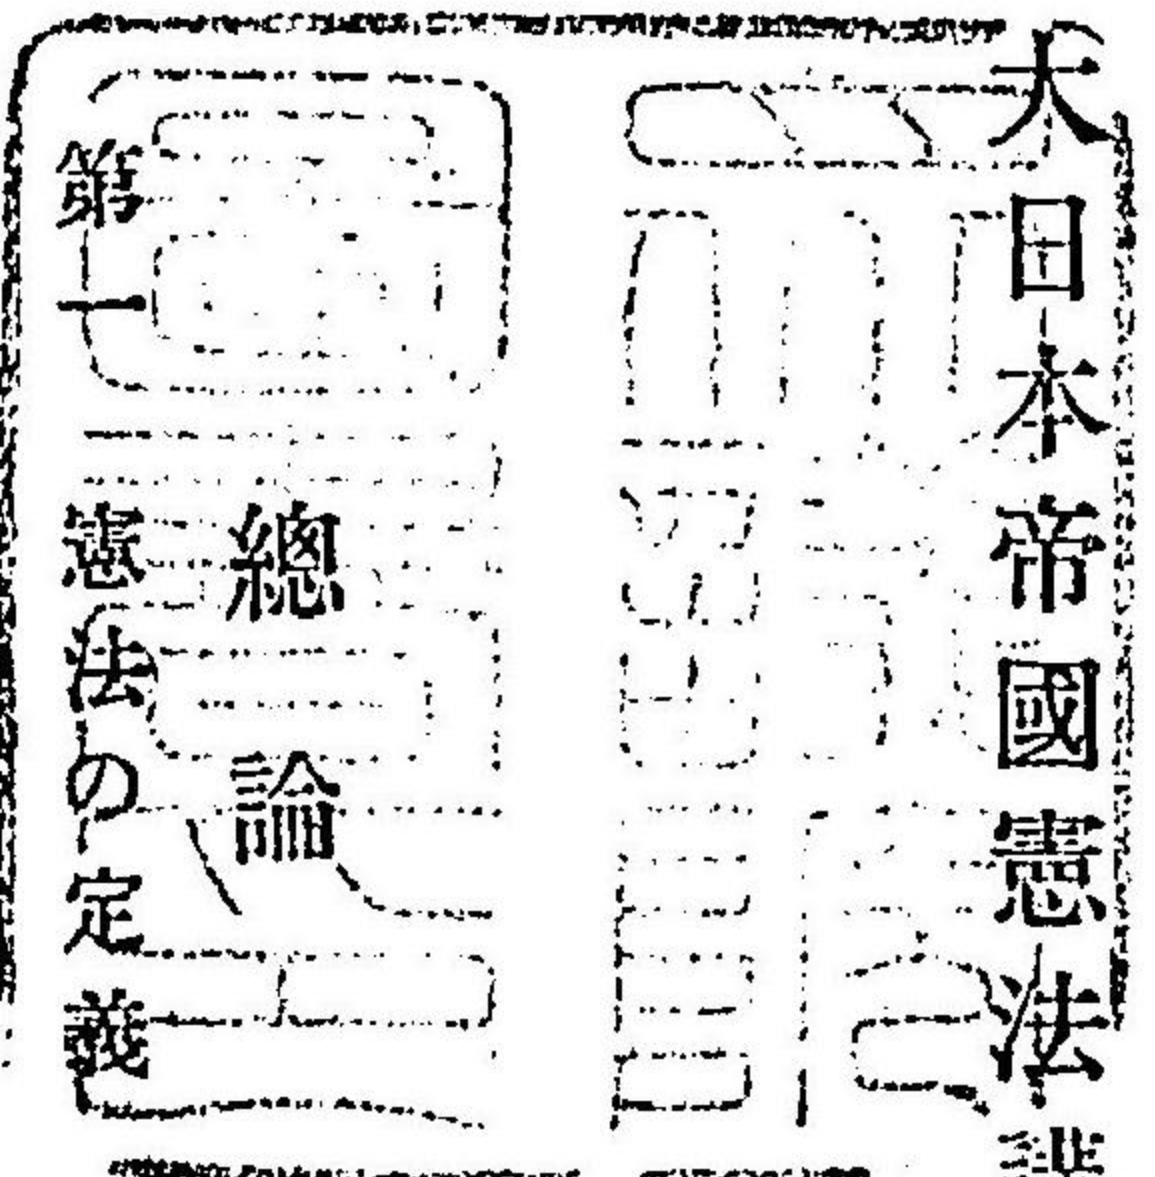 大日本帝國憲法
總論
第一 憲法の定義